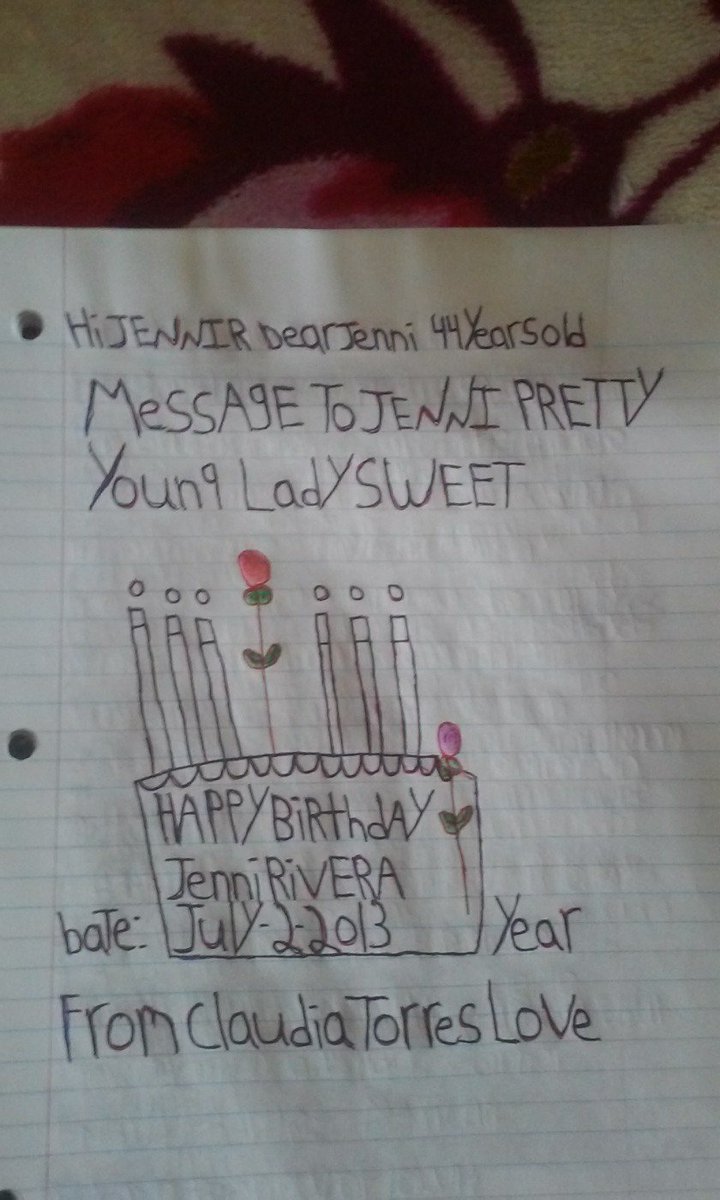 Hi JENNIR Dear Jenni 44 Years old
MeSSAgE To JENNI PRETTY
Young LadY SWEET
HAPPY BiRthdAY
Jenni RiVERA
DaTe: JulY-2-2013 Year
From Claudia Torres LoVe